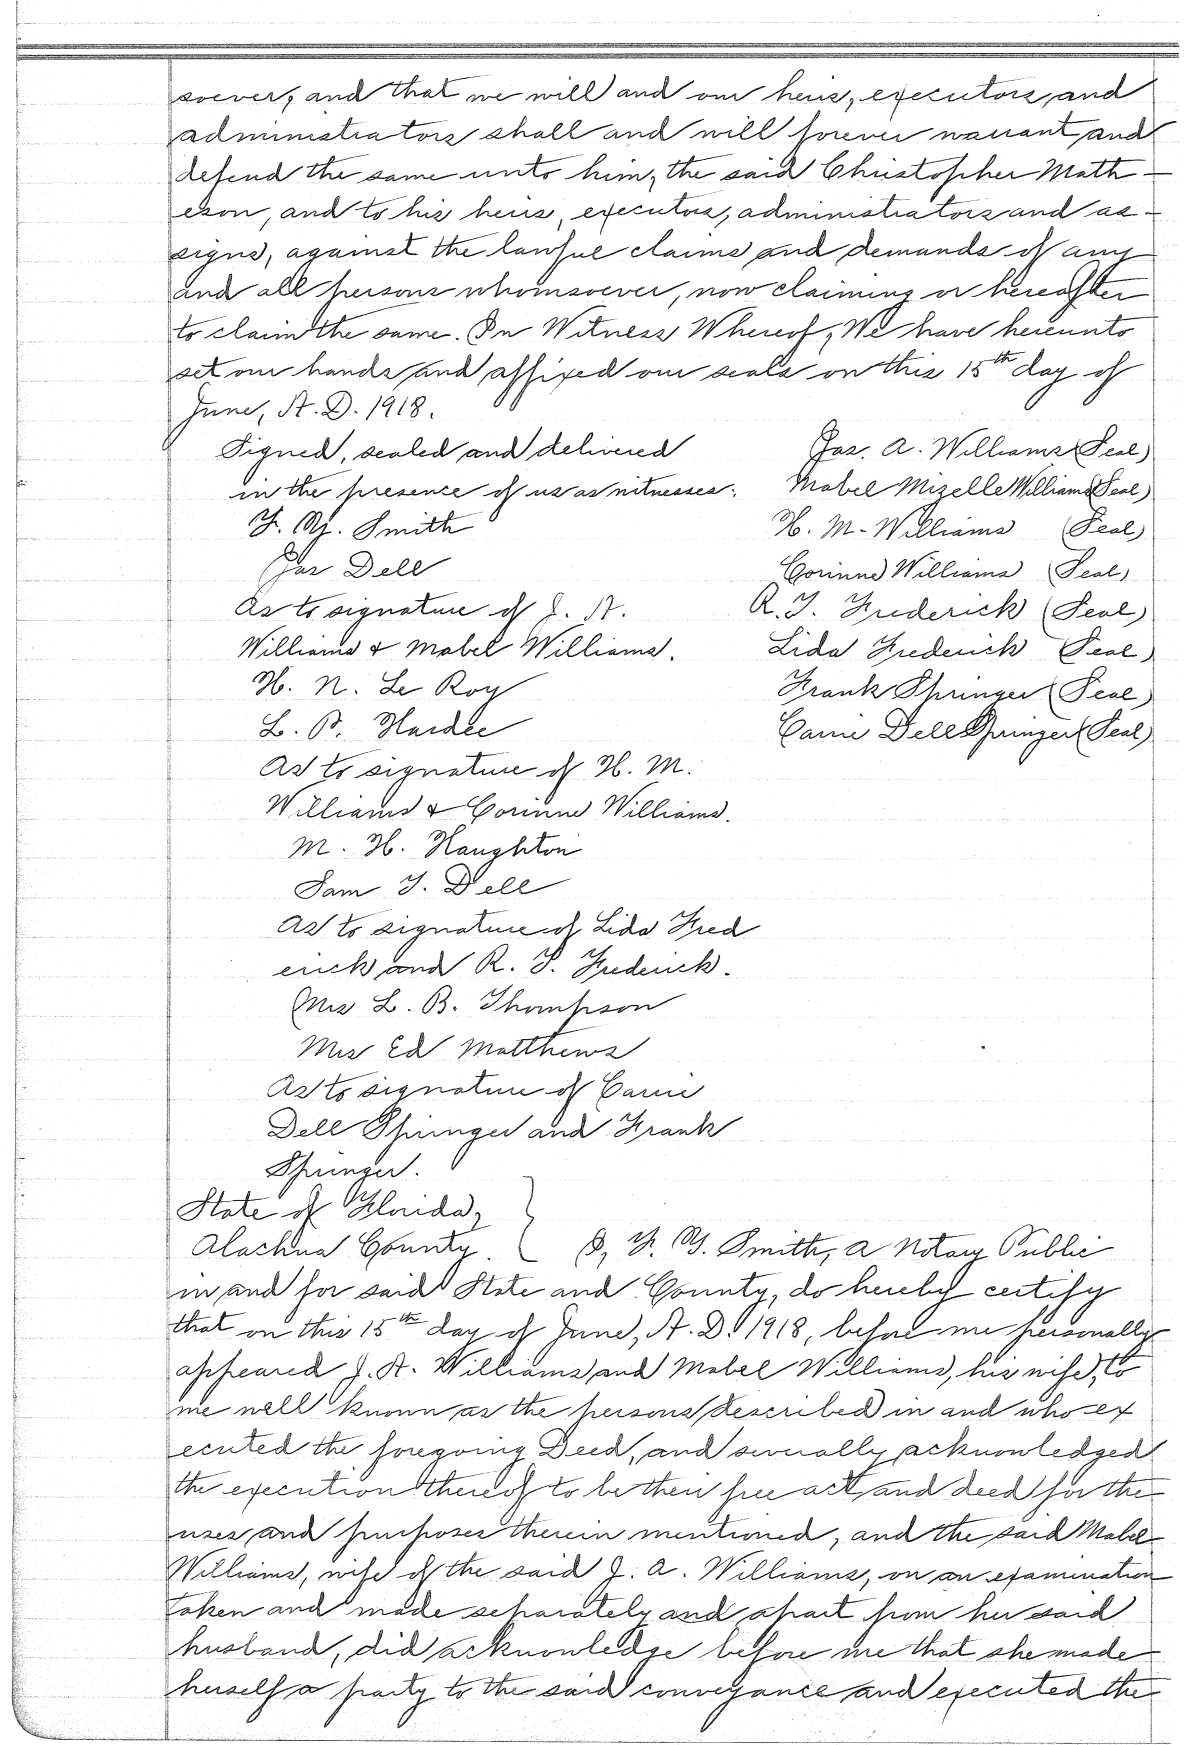 soever, and that we will and our heirs, executors, and
administrators shall and will forever warrant, and
defend the same unto him, the said Christopher Math-
eson, and to his heirs, executors, administrators and as-
signs, against the lawful claims and demands of any
and all persons whomsoever, now claiming or hereafter
to claim the same. In Witness Whereof, We have hereunto
set our hands and affixed our seals on this 15th day of
June, A.D. 1918.
Signed, sealed and delivered Jas. A. Williams (Seal)
in the presence of us as witnesses: Mabel Mizelle Williams (Seal)
F. Y. Smith H. M. Williams (Seal)
Jas Dell Corinne Williams (Seal)
As to signature of J. A. R. T. Frederick (Seal)
Williams & Mabel Williams. Lida Frederick (Seal)
H. N. Le Roy Frank Springer (Seal)
L. P. Hardee Carrie Dell Springer (Seal)
As to signature of H. M.
Williams & Corinne Williams.
M. H. Haughton
Sam T. Dell
As to signature of Lida Fred
erick and R. T. Frederick.
Mrs L. B. Thompson
Mrs Ed Matthews
As to signature of Carrie
Dell Springer and Frank
Springer.
State of Florida,
Alachua County. } I, F. Y. Smith, a Notary Public
in and for said State and County, do hereby certify
that on this 15th day of June, A.D. 1918, before me personally
appeared J. A. Williams and Mabel Williams, his wife, to
me well known as the persons described in and who ex
ecuted the foregoing Deed, and severally acknowledged
the execution thereof to be their free act and deed for the
uses and purposes therein mentioned, and the said Mabel
Williams, wife of the said J. A. Williams, on an examination
taken and made separately and apart from her said
husband, did acknowledge before me that she made
herself a party to the said conveyance and executed the